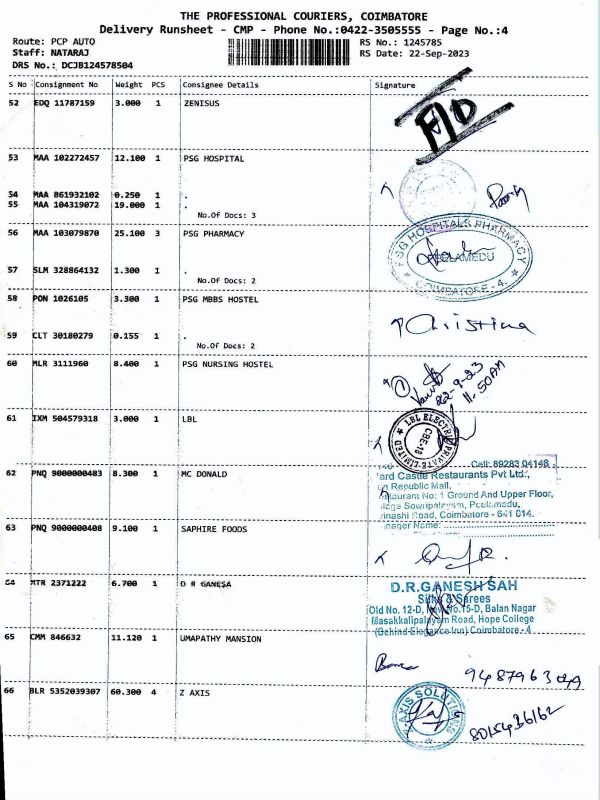 THE PROFESSIONAL COURIERS, COIMBATORE
Delivery Runsheet - CMP - Phone No.:0422-3505555 - Page No.:4
Route: PCP AUTO
RS No.: 1245785
Staff: NATARAJ
RS Date: 22-Sep-2023
DRS No.: DCJB124578504
S No Consignment No Weight PCS Consignee Details Signature
52 EDQ 11787159 3.000 1 ZENISUS
F/D
53 MAA 102272457 12.100 1 PSG HOSPITAL
54 MAA 861932102 0.250 1 .
55 MAA 104319072 19.000 1 .
No.Of Docs: 3
56 MAA 103079870 25.100 3 PSG PHARMACY
PSG HOSPITALS PHARMACY
PEELAMEDU
COIMBATORE - 4.
57 SLM 328864132 1.300 1 .
No.Of Docs: 2
58 PON 1026105 3.300 1 PSG MBBS HOSTEL
Christina
59 CLT 30180279 0.155 1 .
No.Of Docs: 2
60 MLR 3111960 8.400 1 PSG NURSING HOSTEL
22-9-23
11.50AM
61 IXM 504579318 3.000 1 LBL
LBL ELECTRIC PRIVATE LIMITED
CBE-18
62 PNQ 9000000483 8.300 1 MC DONALD
Cell: 89283 04148
ard Castle Restaurants Pvt Ltd.,
Republic Mall,
staurant No: 1 Ground And Upper Floor,
Sowripalayam, Peelamedu,
inashi Road, Coimbatore - 641 014.
nager Name:
63 PNQ 9000000408 9.100 1 SAPHIRE FOODS
64 XTR 2371222 6.700 1 D R GANESA
D.R.GANESH SAH
Silks & Sarees
Old No. 12-D, New No.15-D, Balan Nagar
Masakkalipalayam Road, Hope College
(Behind Elegance Inn) Coimbatore - 4
65 CMM 846632 11.120 1 UMAPATHY MANSION
66 BLR 5352039307 60.300 4 Z AXIS
Z-AXIS SOLUTIONS
8015436162